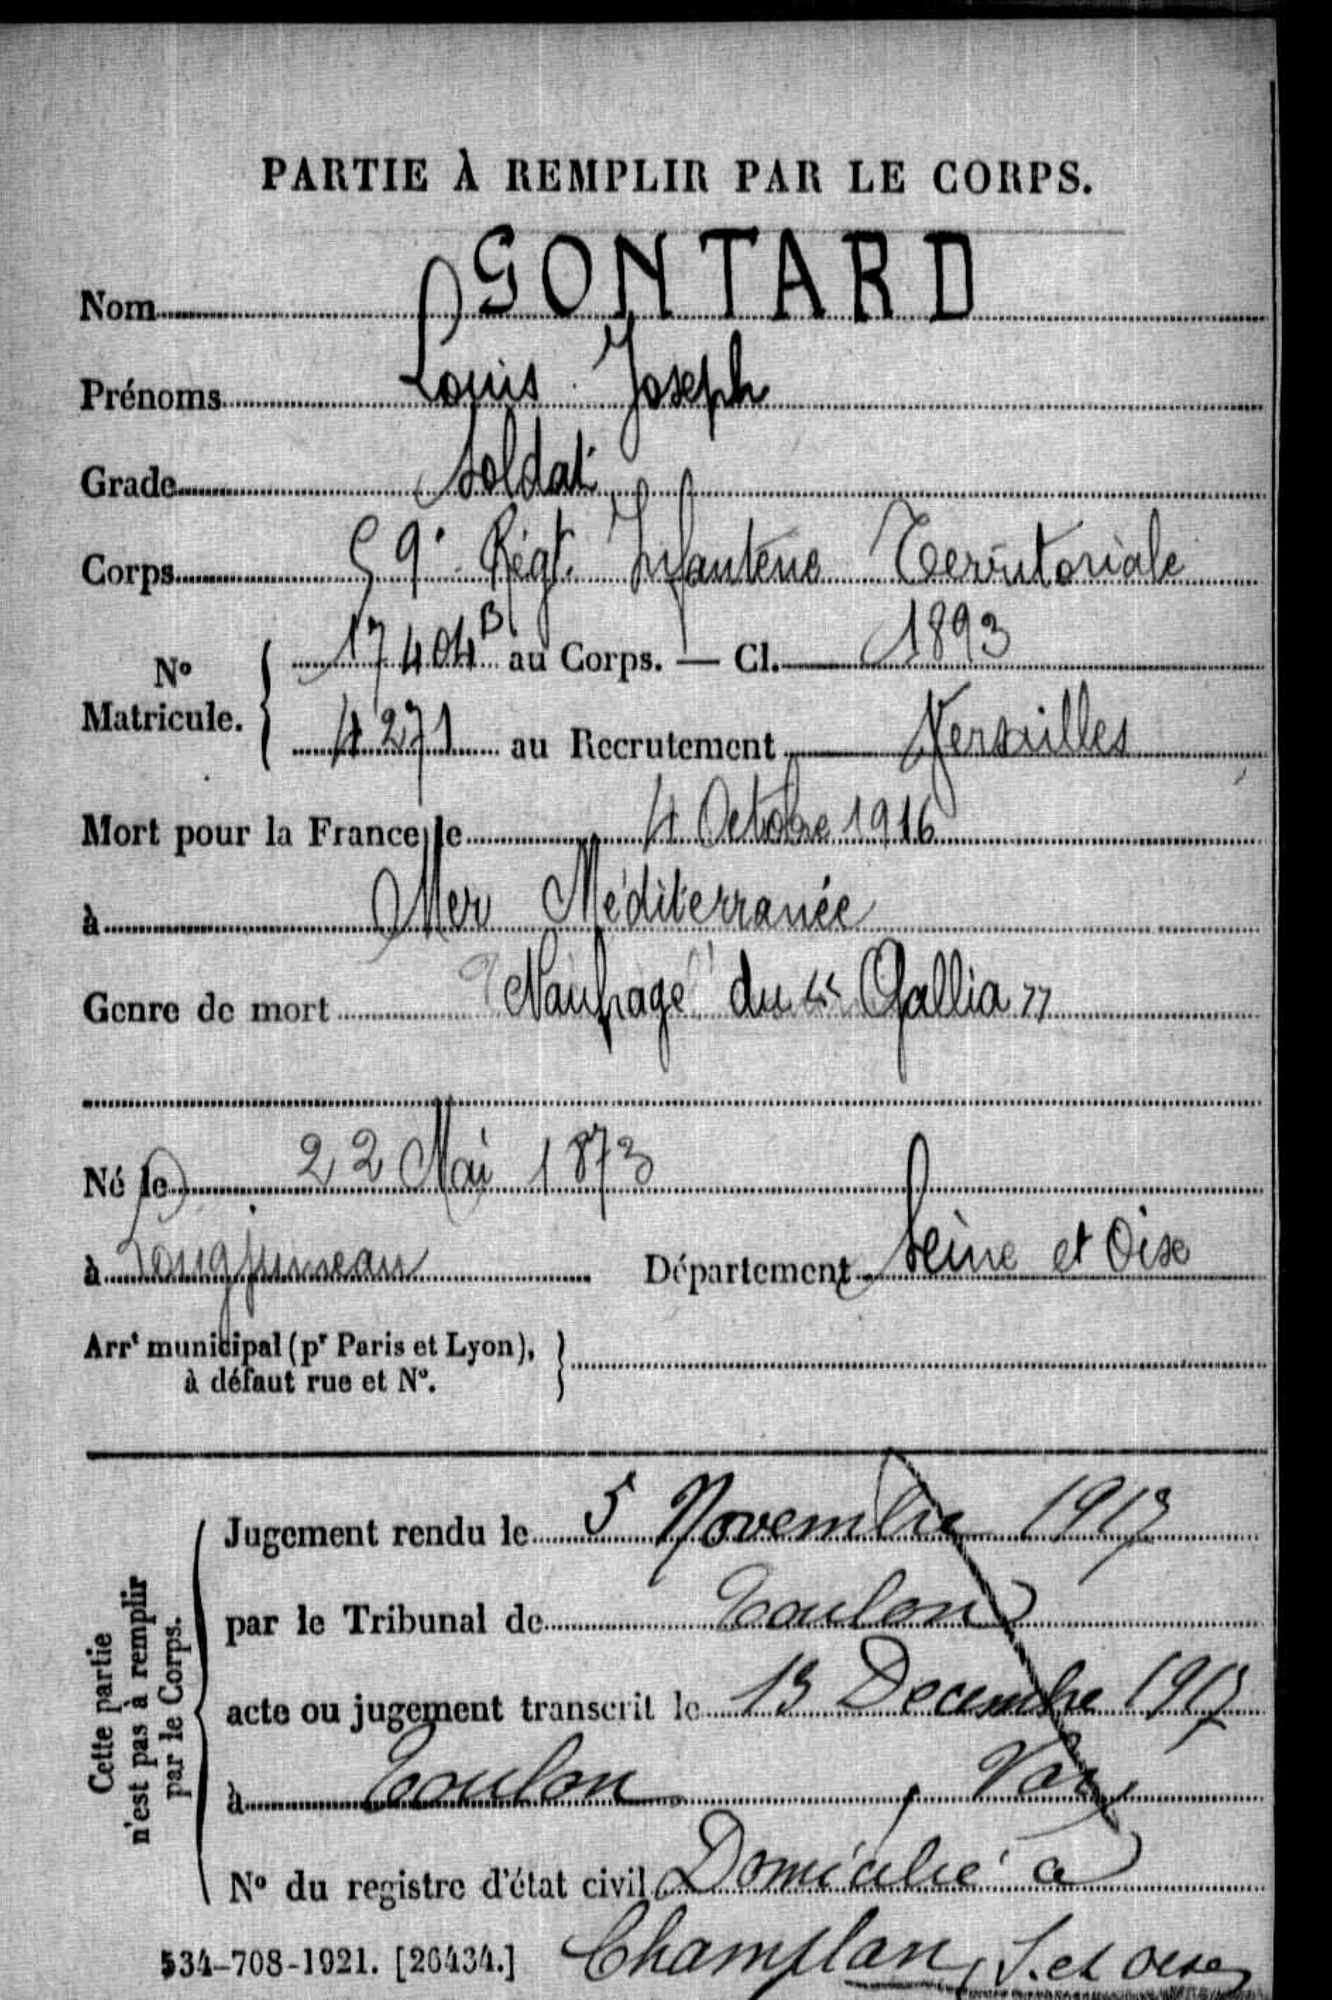 PARTIE À REMPLIR PAR LE CORPS.
Nom GONTARD
Prénoms Louis Joseph
Grade Soldat
Corps 59e Régt. Infanterie Territoriale
No Matricule. { 17404 B au Corps. — Cl. 1893
4271 au Recrutement Versailles
Mort pour la France le 4 Octobre 1916
à Mer Méditerranée
Genre de mort Naufrage du "Gallia"
Né le 22 Mai 1873
à Longjumeau Département Seine et Oise
Arrt municipal (pr Paris et Lyon),
à défaut rue et No. }
Cette partie
n'est pas à remplir
par le Corps.
Jugement rendu le 5 Novembre 1917
par le Tribunal de Toulon
acte ou jugement transcrit le 13 Decembre 1917
à Toulon, Var,
No du registre d'état civil Domicilié à
Champlan, S. et Oise
534-708-1921. [26434.]